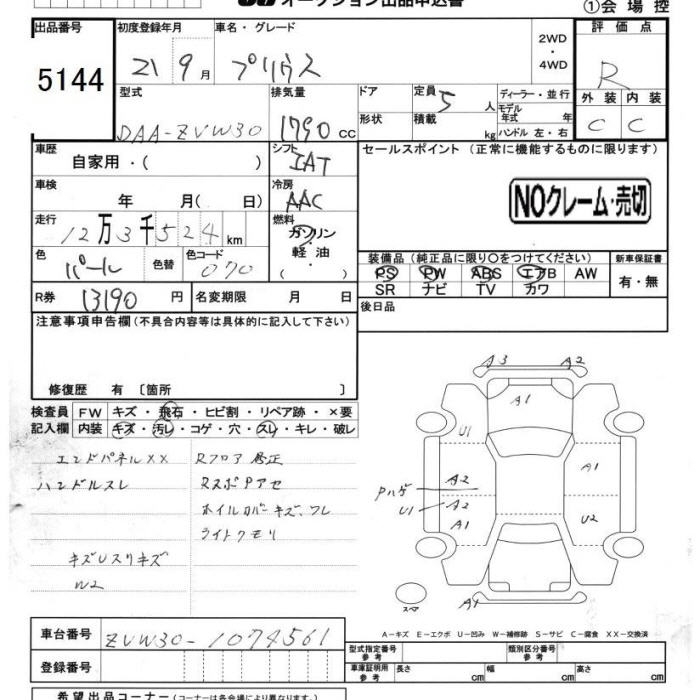 オークション出品申込書
①会場控
出品番号 初度登録年月 車名・グレード 2WD・4WD 評価点
5144
21 9月 プリウス R
型式 排気量 ドア 定員 5人 ディーラー・並行
DAA-ZVW30 1790cc 形状 積載 kg モデル年式 年 ハンドル 左・右
外装 内装
C C
車歴 自家用・( ) シフト IAT
セールスポイント(正常に機能するものに限ります)
車検 年 月( 日) 冷房 AAC
NOクレーム・売切
走行 12万3千524km 燃料 ガソリン・軽油( )
色 パール 色替 色コード 070
装備品(純正品に限り○をつけてください) 新車保証書
PS PW ABS エアB AW 有・無
SR ナビ TV カワ
R券 13190円 名変期限 月 日
後日品
注意事項申告欄(不具合内容等は具体的に記入して下さい)
修復歴 有 [箇所 ]
検査員記入欄
FW キズ・飛石・ヒビ割・リペア跡・×要
内装 キズ・汚レ・コゲ・穴・スレ・キレ・破レ
エンドパネルXX Rフロア修正
ハンドルスレ
ホイルカバーキズ、ワレ
ライトクモリ
W2
A3 A2
A1
U1
A2 A1
Pハゲ
U1 A2
A1 U2
スペア
A4
A-キズ E-エクボ U-凹み W-補修跡 S-サビ C-腐食 XX-交換済
車台番号 ZVW30-1074561
登録番号
型式指定番号 参考 類別区分番号 参考
車庫証明用 参考 長さ cm 幅 cm 高さ cm
希望出品コーナー(コーナーは各会場により異なります)